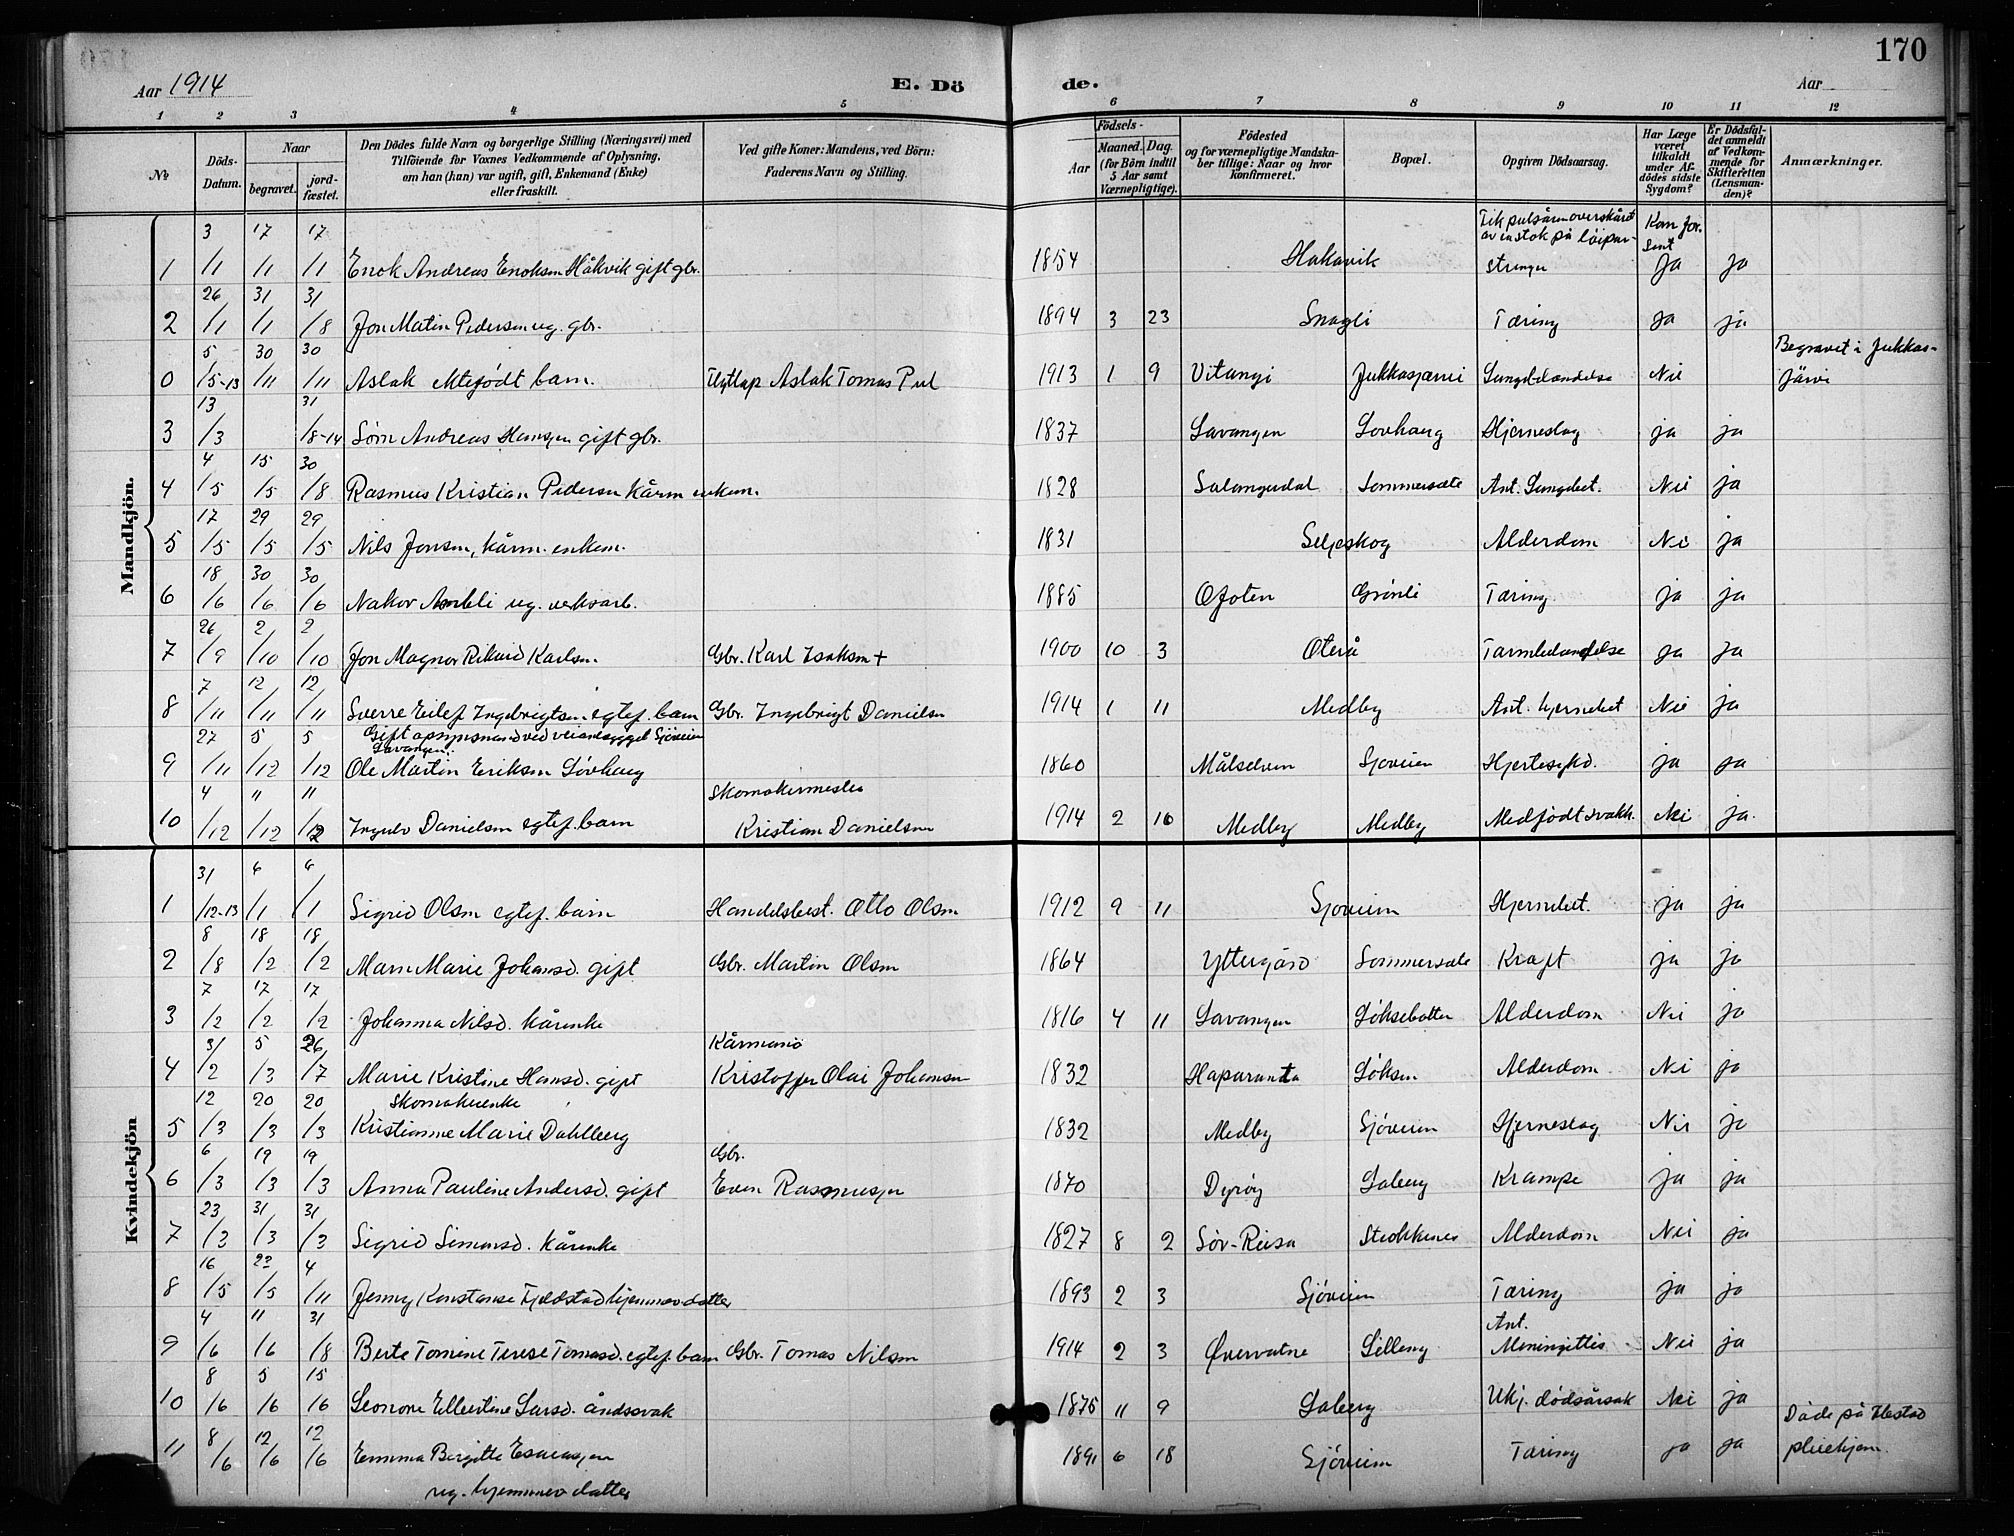 170
Aar 1914
E. Dö
de.
Aar
1 2 3 4 5 6 7 8 9 10 11 12
No
Döds-Datum.
Naar
begravet.
jord-fæstet.
Den Dödes fulde Navn og borgerlige Stilling (Næringsvei) med
Tilföiende for Voxnes Vedkommende af Oplysning,
om han (hun) var ugift, gift, Enkemand (Enke)
eller fraskilt.
Ved gifte Koner: Mandens, ved Börn:
Faderens Navn og Stilling.
Födsels-
Aar
Maaned. Dag.
(for Börn indtil
5 Aar samt
Værnepligtige).
Födested
og for værnepligtige Mandska-
ber tillige: Naar og hvor
konfirmeret.
Bopæl.
Opgiven Dödsaarsag.
Har Læge
været
tilkaldt
under Af-
dödes sidste
Sygdom?
Er Dödsfal-
det anmeldt
af Vedkom-
mende for
Skifteretten
(Lensman-
den)?
Anmærkninger.
Mandkjön.
1 3/1 17/1 17/1 Enok Andreas Enoksen Håkvik gift gbr. 1854 Hakavik Fik pulsåren overskåret av en stok på løipe- strenger Kom for sent ja ja
2 26/1 31/1 31/8 Jon Matin Pedersen ug. gbr. 1894 3 23 Snagli Tæring ja ja
0 5/5-13 30/11 30/11 Aslak ektefødt barn. Flytlap Aslak Tomas Pul 1913 1 9 Vitangi Jukkasjærvi Lungebetændelse Nei Begravet i Jukkas-järvi
3 13/3 31/8-14 Sørn Andreas Hansen gift gbr. 1837 Lavangen Lovhaug Hjerneslag ja ja
4 4/5 15/5 30/8 Rasmus Kristian Pedersen kårm. enkem. 1828 Salangsdal Sommersæte Ant. Lungebet. Nei ja
5 17/5 29/5 29/5 Nils Jonsen, kårm. enkem. 1831 Seljeskog Alderdom Nei ja
6 18/6 30/6 30/6 Nakor ug. verksarb. 1885 Ofoten Grønli Tæring ja ja
7 26/9 2/10 2/10 Jon Magnor Rikard Karlsen. Gbr. Karl Isaksen + 1900 10 3 Oterå Tarmbetændelse ja ja
8 7/11 12/11 12/11 Sverre Eilef Ingebrigtsen egtef. barn Gbr. Ingebrigt Danielsen 1914 1 11 Medby Ant. hjernebet Nei ja
9 27/11 5/12 5/12 Gift opsynsmand ved veianlægget Sjøveien Lavangen. Ole Martin Eriksen Løvhaug 1860 Målselven Sjøveien Hjertesykd. ja ja
10 4/12 11/12 11/12 Ingulv Danielsen egtef. barn Skomakermester Kristian Danielsen 1914 2 16 Medby Medby Medfødt svakh. Nei ja.
Kvindekjön
1 31/12-13 6/1 6/1 Sigrid Olsen egtef. barn Handelsbest. Otto Olsen 1912 9 11 Sjøveien Hjernebet. ja ja
2 8/8 18/2 18/2 Maren Marie Johansd. gift Gbr. Martin Olsen 1864 Yttergård Sommersæte Kræft ja ja
3 7/2 17/2 17/2 Johanna Nilsd. kårenke 1816 4 11 Lavangen Løksebotten Alderdom Nei ja
4 31/2 5/3 26/7 Marie Kristine Hansd. gift Kårmand Kristoffer Olai Johansen 1832 Haparanda Løksen Alderdom Nei ja
5 12/3 20/3 20/3 Skomakerenke Kristianne Marie Dahlberg 1832 Medby Sjøveien Hjerneslag Nei ja
6 6/3 19/3 19/3 Anna Pauline Andersd. gift Gbr. Even Rasmussen 1870 Dyrøy Laberg Krampe ja ja
7 23/3 31/3 31/3 Sigrid Simonsd. kårenke 1827 8 2 Sør-Reisa Strokkenes Alderdom Nei ja
8 16/5 22/5 4/11 Jenny Konstanse Fjeldstad hjemmev. datter 1893 2 3 Sjøveien Tæring ja ja
9 4/6 11/6 31/8 Berte Tomine Terese Tomasd. egtef. barn Gbr. Tomas Nilsen 1914 2 3 Øvervatne Lilleng Ant. Meningittis Nei ja
10 8/6 5/6 15/6 Leonore Ellertine Larsd. åndssvak 1875 11 9 Laberg Ukj. dødsårsak Nei ja
11 8/6 12/6 12/6 Emma Birgitte Esaiassen ug. hjemmev. datter 1891 6 18 Sjøveien Tæring ja ja Døde på Ilestad pleiehjem.